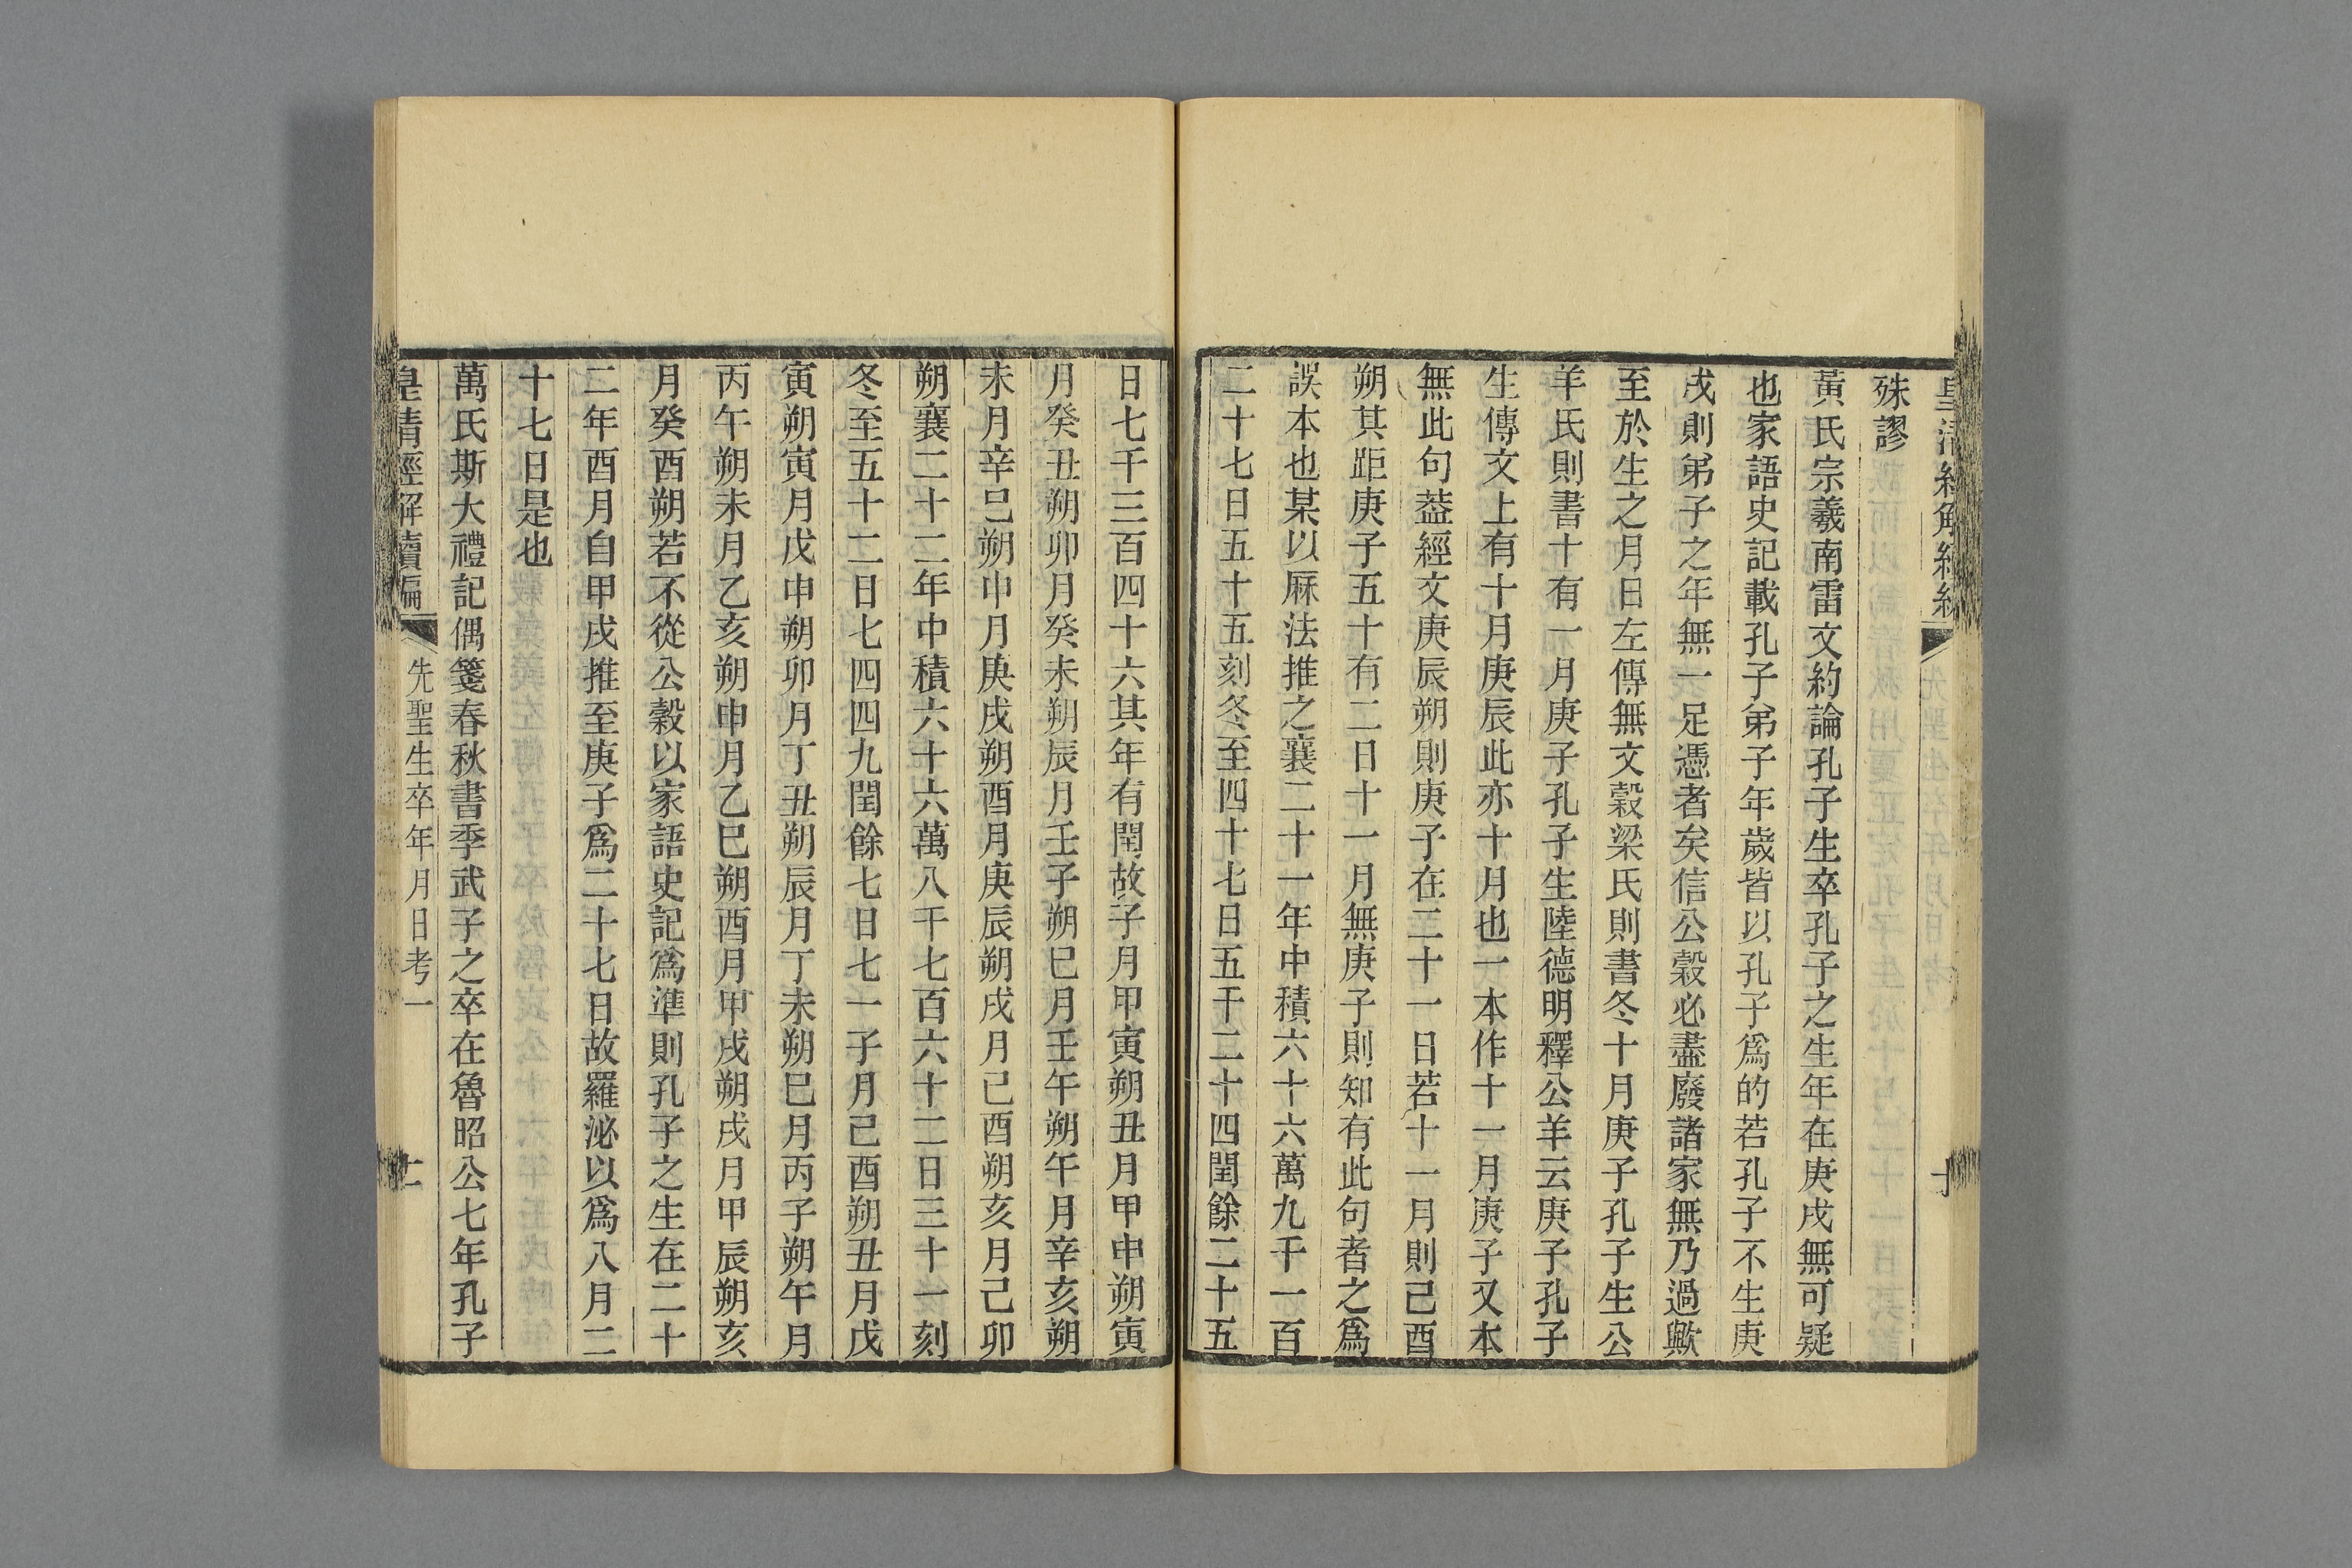 殊謬
黃氏宗羲南雷文約論孔子生卒孔子之生年在庚戌無可疑
也家語史記載孔子弟子年歲皆以孔子爲的若孔子不生庚
戌則弟子之年無一足憑者矣信公穀必盡廢諸家無乃過歟
至於生之月日左傳無文穀梁氏則書冬十月庚子孔子生公
羊氏則書十有一月庚子孔子生陸德明釋公羊云庚子孔子
生傳文上有十月庚辰此亦十月也一本作十一月庚子又本
無此句葢經文庚辰朔則庚子在二十一日若十一月則己酉
朔其距庚子五十有二日十一月無庚子則知有此句者之爲
誤本也某以厤法推之襄二十一年中積六十六萬九千一百
二十七日五十五刻冬至四十七日五千二十四閏餘二十五
日七千三百四十六其年有閏故子月甲寅朔丑月甲申朔寅
月癸丑朔卯月癸未朔辰月壬子朔巳月壬午朔午月辛亥朔
未月辛巳朔申月庚戌朔酉月庚辰朔戌月己酉朔亥月己卯
朔襄二十二年中積六十六萬八千七百六十二日三十一刻
冬至五十二日七四四九閏餘七日七一子月己酉朔丑月戊
寅朔寅月戊申朔卯月丁丑朔辰月丁未朔巳月丙子朔午月
丙午朔未月乙亥朔申月乙巳朔酉月甲戌朔戌月甲辰朔亥
月癸酉朔若不從公穀以家語史記爲準則孔子之生在二十
二年酉月自甲戌推至庚子爲二十七日故羅泌以爲八月二
十七日是也
萬氏斯大禮記偶箋春秋書季武子之卒在魯昭公七年孔子
皇清經解續編
先聖生卒年月日考一